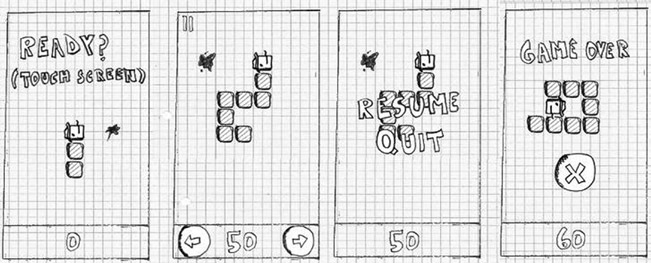 READY?
(TOUCH SCREEN)
0
50
RESUME
QUIT
50
GAME OVER
60